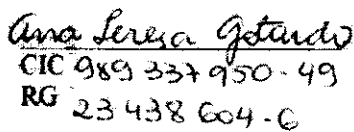 Ana Tereza Gotardo
CIC 989 337 950-49
RG 23 438 604-6